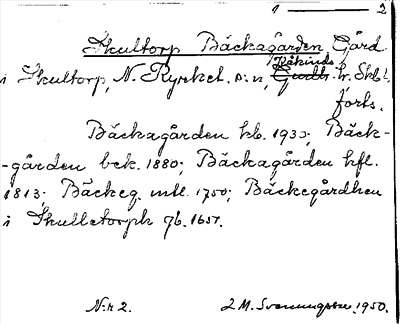 1 — 2
Skultorp Bäckagården Gård
Kåkinds
i Skultorp, N. Kyrket. s:n, Gudh. hr. Skbl.
forts.
Bäckagården hb. 1930; Bäck-
-gården bek. 1880; Bäckagården hfl.
1813; Bäckeg. mtl. 1750; Bäckegårdhen
i Skulletorph jb. 1651.
N:r 2. I M. Svenungsson 1950.